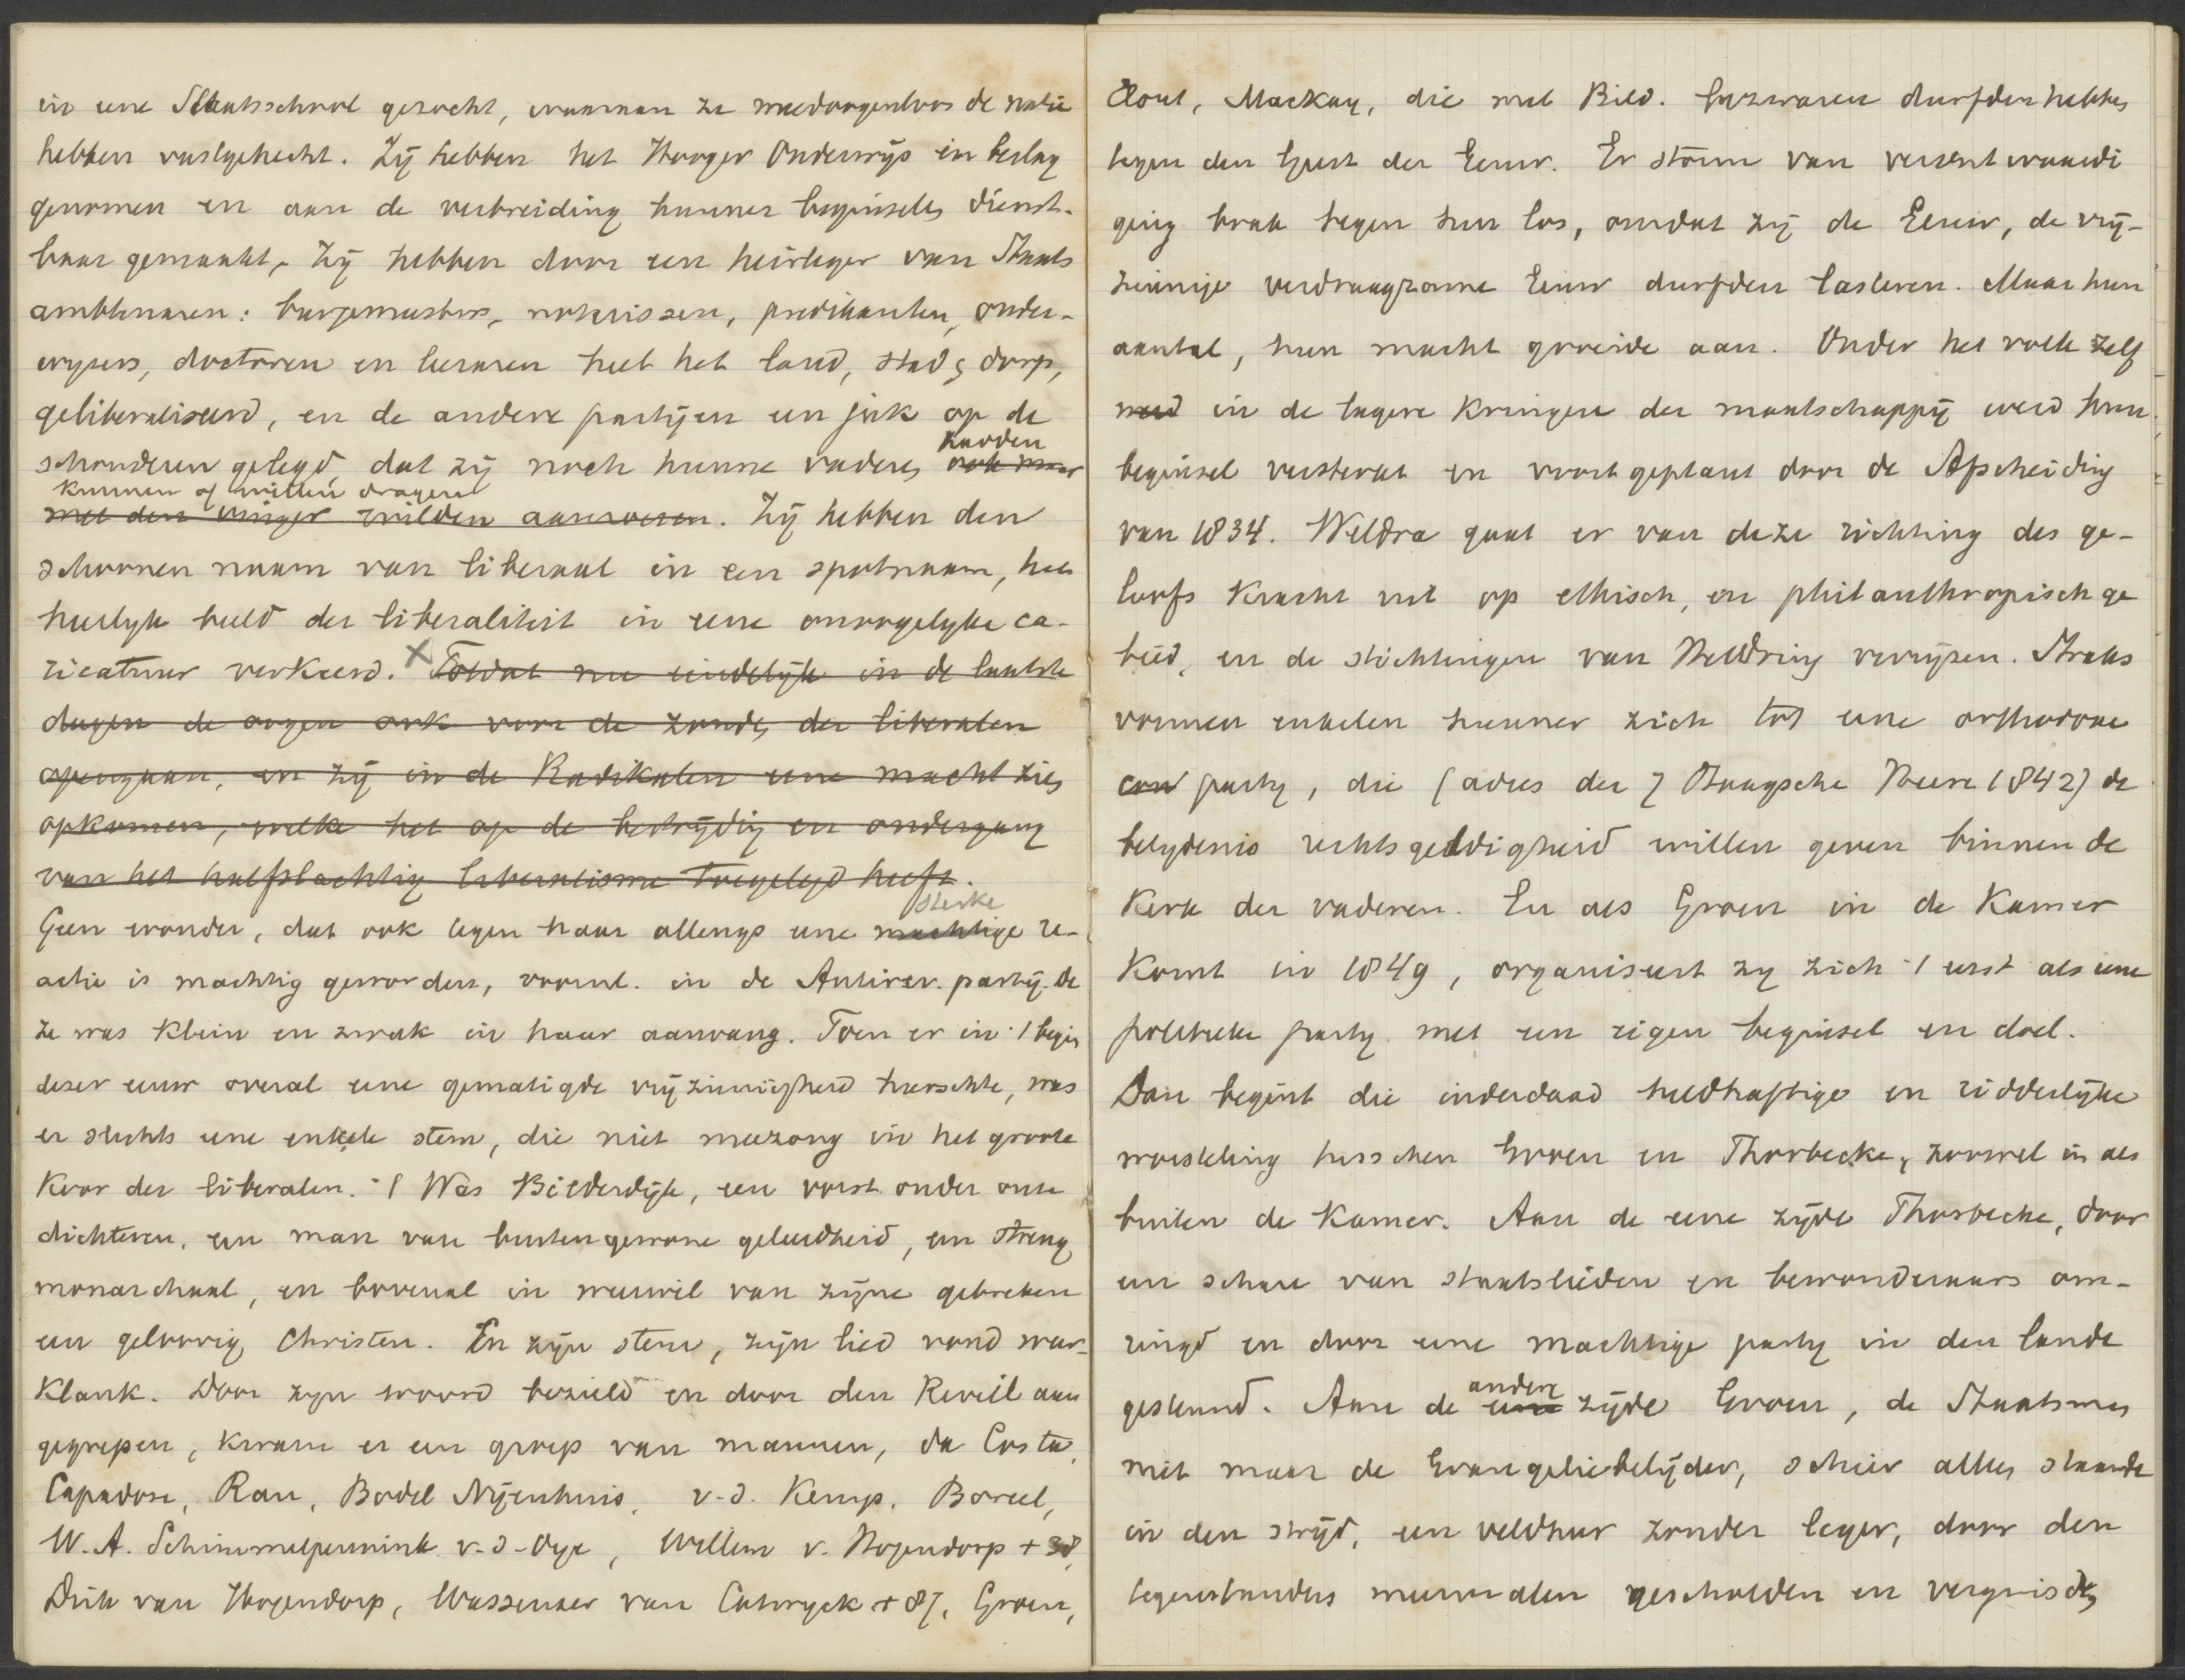 in eene Staatsschool gezocht, waaraan ze meedoogenloos de natie
hebben vastgehecht. Zij hebben het Hooger Onderwijs in beslag
genomen en aan de verbreiding hunner beginselen dienst-
baar gemaakt, Zij hebben door een heirleger van Staats
ambtenaren: burgemeesters, notarissen, predikanten, onder-
wijzers, doctoren en leeraren heel het land, stad en dorp,
geliberaliseerd, en de andere partijen een juk op de
zouden
schouderen gelegd, dat zij noch hunne vaderen ook maar
kunnen of willen dragen
met den vinger wilden aanroeren. Zij hebben den
schoonen naam van liberaal in een spotnaam, het
heerlyk beeld der liberaliteit in eene onoogelyke ca-
ricatuur verkeerd. X Totdat nu eindelijk in de laatste
dagen de oogen ook voor de zonden der liberalen
opengaan, en zij in de Radikalen eene macht zien
opkomen, welke het op de bestrijding en ondergang
van het halfslachtig liberalisme toegelegd heeft.
sterke
Geen wonder, dat ook tegen haar allengs eene machtige re-
actie is machtig geworden, vooral. in de Antirev. partij. De
Ze was klein en zwak in haar aanvang. Toen er in 't begin
dezer eeuw overal eene gematigde vrijzinnigheid heerschte, was
er slechts eene enkele stem, die niet meezong in het groote
Koor der liberalen. 't Was Bilderdijk, een vorst onder onze
dichteren, een man van buitengewone geleerdheid, een streng
monarchaal, en bovenal in weerwil van zijne gebreken
een geloovig Christen. En zijn stem, zijn lied vond weer-
klank. Door zyn woord bezield en door den Reveil aan
gegrepen, kwam er een groep van mannen, da Costa,
Capadose, Rau, Bodel Nijenhuis, v.d. Kemp, Boreel,
W.A. Schimmelpennink v.d. Oye, Willem v. Hogendorp + 38,
Dirk van Hogendorp, Wassenaer van Catwyck + 87, Groen,
Elout, Mackay, die met Bild. bezwaren durfden hebben
tegen den Geest der Eeuw. Er storm van verontwaardi
ging brak tegen hun los, omdat zij de Eeuw, de vrij-
zinnige verdraagzame Eeuw durfden lasteren. Maar hun
aantal, hun macht groeide aan. Onder het volk zelf
werd in de lagere kringen der maatschappij werd hun
beginsel versterkt en voortgeplant door de Afscheiding
van 1834. Weldra gaat er van deze richting des ge-
loofs kracht uit op ethisch, en philanthropisch ge
bied, en de stichtingen van Heldring verrijzen. Straks
vormen enkelen hunner zich tot eene orthodoxe
con party, die (adres der 7 Haagsche Heeren 1842) de
belydenis rechtsgeldigheid willen geven binnen de
Kerk der vaderen. En als Groen in de Kamer
komt in 1849, organiseert zy zich 't eerst als eene
politieke party met een eigen beginsel en doel.
Dan begint die inderdaad heldhaftige en ridderlijke
worsteling tusschen Groen en Thorbecke, zoowel in als
buiten de Kamer. Aan de eene zijde Thorbecke, door
een schare van staatslieden en bewonderaars om-
ringd en door eene machtige party in den lande
andere
gesteund. Aan de eene zijde Groen, de Staatsman
niet maar de Evangeliebelijder, schier alleen staande
in den strijd, een veldheer zonder leger, door den
tegenstanders meermalen gescholden en verguisd,